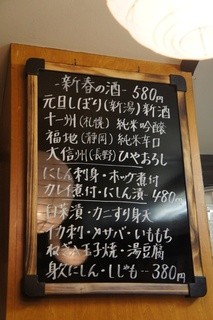 新春の酒 - 580円
元旦しぼり(新潟) 新酒
十一州(札幌) 純米吟醸
福地(静岡) 純米辛口
大信州(長野) ひやおろし
にしん刺身・ホッケ煮付
カレイ煮付・にしん漬 - 480円
白菜漬・カニすり身天
イカ刺・〆サバ・いももち
ねぎ玉子焼・湯豆腐
身欠にしん・ししゃも - 380円